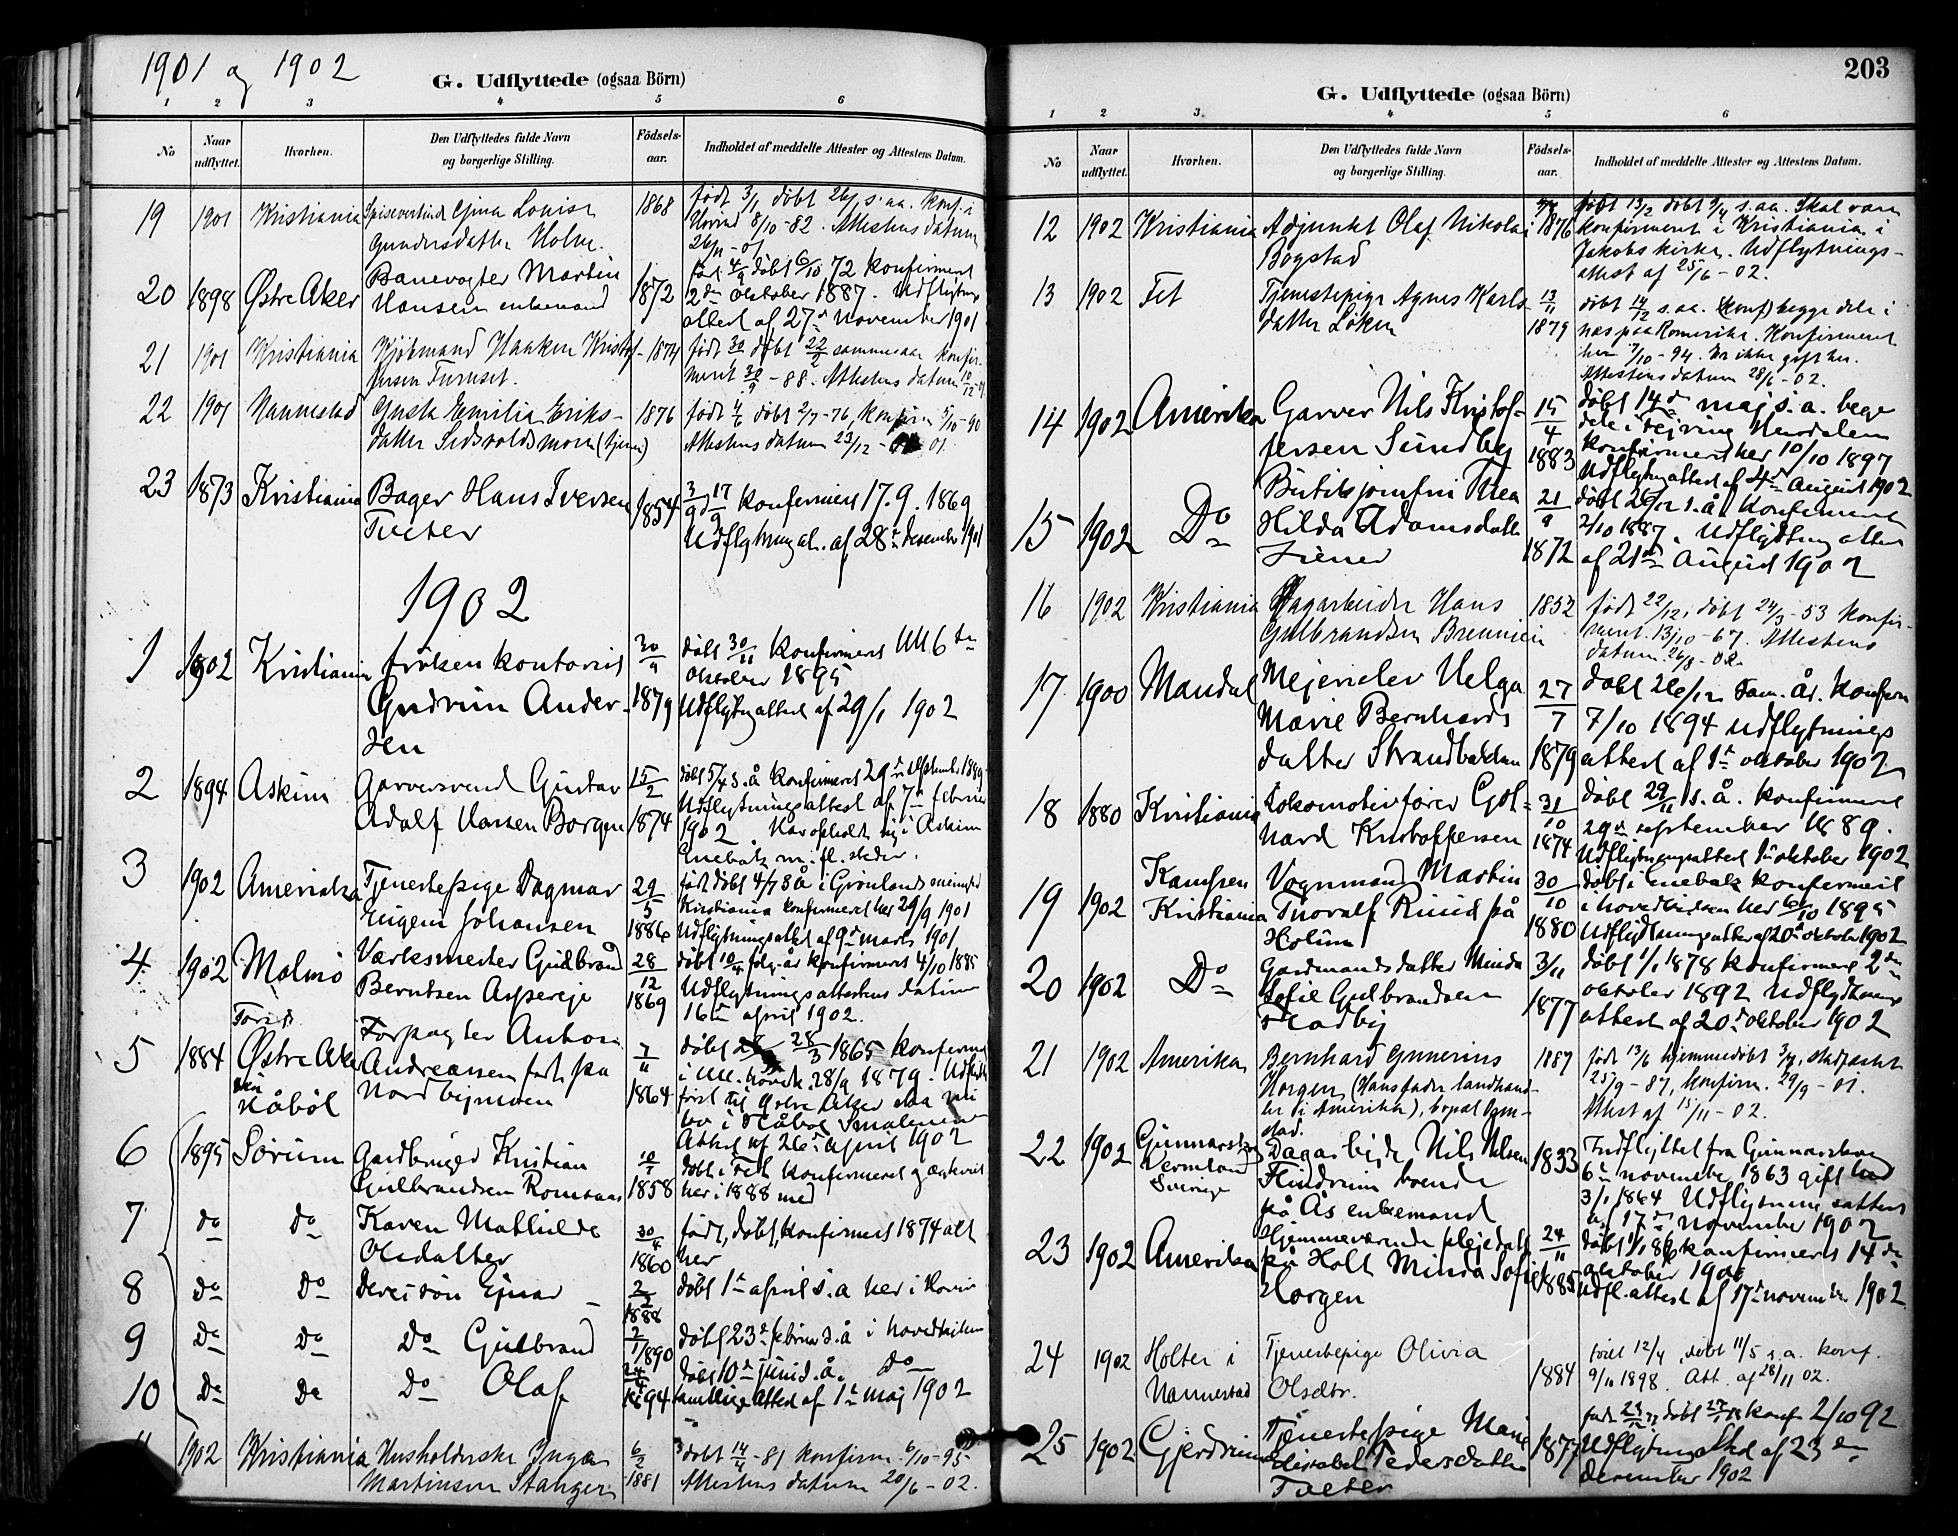 1901 og 1902
G. Udflyttede (ogsaa Börn)
1 2 3 4 5 6
No
Naar udflyttet.
Hvorhen.
Den Udflyttedes fulde Navn og borgerlige Stilling.
Födsels-aar.
Indholdet af meddelte Attester og Attestens Datum.
19 1901 Kristiania Spisevertinde Gina Lovise 1868 født 3/1 døbt 26/1 s. aa. konf. i
Gundersdatter Holm. 8/10-82. Attestens datum
26/11-01
20 1898 Østre Aker Banevogter Martin 1872 født 4/9 døbt 6/10 72 konfirmert
Hansen enkemand 2den oktober 1887. Udflytnings
attest af 27de November 1901
21 1901 Kristiania Kjøbmand Haaken Kristof- 1874 født 30/1 døbt 22/2 sammesaar konfir-
fersen Furuset. meret 30/9-88. Attestens datum 10/12-01
22 1901 Nannestad Gusta Emilie Eriks- 1876 født 4/6 døbt 2/7-76, konfirm 5/10-90
datter Eidsvoldsmoen (tjener) Attestens datum 23/12-01
23 1873 Kristiania Bager Hans Iversen 1854 3/9 d 17/9 konfirmert 17.9.1869
Tveter Udflytning at. af 28de desember 1901
1902
1 1902 Kristiania frøken kontorist 30/9 døbt 30/11 konfirmert Ull 6te
Gudrun Ander- 1879 oktober 1895
sen Udflytng attest af 29/1 1902
2 1894 Askim Garversvend Gustav 15/2 døbt 5/4 s. å konfirmeret 29de septemb. 1889
Adolf Hansen Borgen 1874 Udflytningsattest af 7de februar
1902. Har opholdt sig i Askim
Enebak m. fl. steder.
3 1902 Amerika Tjenestepige Dagmar 29/5 født døbt 4/7 8å i Grønlands menighed
Eugenie Johansen 1886 Kristiania konfirmeret her 29/9 1901
Udflytningsattest af 9de marts 1901
4 1902 Malmö Værksmester Gulbrand 28/12 døbt 10/4 følg. år konfirmert 4/10 1885
Berntsen Aspereje 1869 Udflytningsattestens datum
16de april 1902.
5 1884 Først Østre Aker Forpagter Anton 7/11 døbt 28/3 1865 konfirm
Andreassen født på 1864 i Ull. hovedk. 28/9 1879. Udflytt
Nordbymoen først til Østre Aker saa
bor i Håbøl Smålenene
Håbøl Attest af 26de april 1902
6 1895 Sørum Gardbruger Kristian 10/1 døbt i Fet konfirmeret og ægteviet
Gulbrandsen Romsaas 1858 her i 1888 med
7 do do Karen Mathilde 30/4 født, døbt, konfirmert 1874 alt
Olsdatter 1860 her
8 do do Deres søn Ejnar 1888 døbt 1ste april s. a her i
9 do do do Gulbrand 1890 døbt 23de februar s. å i hovedkirken
10 do do do Olaf 1894 døbt 10de juni s. å. do
samtlige attest af 1ste maj 1902
1902 Kristiania Husholderske Inga 6/2 døbt 14/4-81 konfirm. 6/10-95
Martinsen Stanger 1881 Attestens datum 20/6-02.
203
G. Udflyttede (ogsaa Börn)
1 2 3 4 5 6
No
Naar udflyttet.
Hvorhen.
Den Udflyttedes fulde Navn og borgerlige Stilling.
Födsels-aar.
Indholdet af meddelte Attester og Attestens Datum.
12 1902 Kristiania Adjunkt Olaf Nikolai 1876 født 13/2 døbt 9/4 s. aa. Skal være
Bogstad konfirmeret i Kristiania i
Jakobs kirke. Udflytnings-
attest af 25/6-02.
13 1902 Fet Tjenestepige Agnes Karls- 13/11 døbt 14/12 s. aa. (konf) begge dele i
datter Løken 1879 Næs paa Romerike. Konfirmeret
her 7/10-94. Er ikke gift her.
Attestens datum 28/6-02.
14 1902 Amerika Garver Nils Kristof- 15/4 døbt 14de maj s. a. bege
fersen Sundby 1883 dele i Vejring Urskaden
konfirmert her 10/10 1897
Udflytng attest af 4de August 1902
15 1902 Do Butiksjomfru Thea 21/9 døbt 26/12 s. å. konfirmert
Hilda Adamsdatter 1872 2/10 1887. Udflytting attest
af 21de August 1902
16 1902 Kristiania Dagarbeider Hans 1852 født 22/12, døbt 24/3-53 konfir-
Gulbrandsen Brennien mert. 13/10-67. Attestens
datum 26/8-02.
17 1900 Mandal Mejerielev Helga 27/7 døbt 26/12 sam. år. konfirm
Marie Bernhards 1879 7/10 1894 udflytnings
datter Strandbakken attest af 1ste oktober 1902
18 1880 Kristiania Lokomotivfører Got- 31/10 døbt 29/11 s. å. konfirmeret
hard Kristoffersen 1874 29de september 1889.
Udflytningsattest 1ste oktober 1902
19 1902 Kampen Kristiania Vognmand Martin 30/10 døbt i Enebak konfirmeret
Thoralf Ruud på 1880 i hovedkirken her 6/10 1895
Holum Udflytning attest af 20de oktober 1902
20 1902 Do Gardmandsdatter Minda 3/11 døbt 1/1 1878 konfirmert 2den
Sofie Gulbrandsen 1877 oktober 1892 Udflytnings
Stadby attest af 20de oktober 1902
21 1902 Amerika Bernhard Gunerius 1887 født 13/6 hjemmedøbt 3/7, stadfæstet
Horgen (Hans fader landhand- 25/9-87, konfirm. 29/9-01.
ler i Amerika), bopæl Ogn- Attest af 15/11-02.
stad.
22 1902 Gunnarskog Vermland Sverige Dagarbejder Nils Nilsen 1833 Indflyttet fra Gunnarskog
Flindrum boende 6te november 1863 gift her
på Ås enkemand 3/1 1864 Udflytnings attest
af 17de november 1902
23 1902 Amerika Hjemmeværende plejedatt 24/11 døbt 1/1 86 konfirmeret 14de
på Holt Minda Sofie 1885 oktober 1900
Horgen Udfl. attest af 17de november 1902
24 1902 Holter i Nannestad Tjenestepige Olivia 1884 født 12/4, døbt 11/5 s. a. konf.
Olsdtr. 9/10 1898. Att. af 28/11 02.
25 1902 Gjerdrum Tjenestepige Marie 1877 konf 2/10 92
Elisabet Pedersdatter Udflytning attest af 23de
Tveter desember 1902